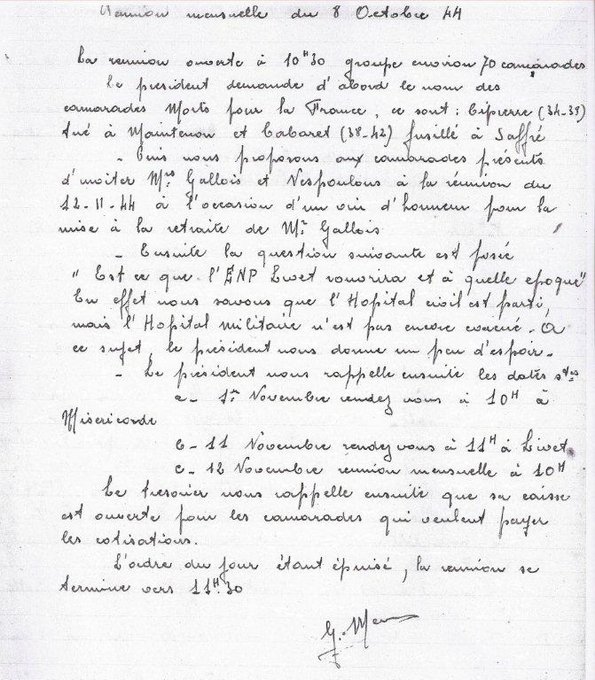 Réunion mensuelle du 8 Octobre 44
La reunion ouverte à 10H30 groupe environ 70 camarades
Le president demande d'abord le nom des
camarades Morts pour la France, ce sont : Lipierre (34-38)
tué à Maintenon et Cabaret (38-42) fusillé à Saffré
- Puis nous proposons aux camarades présents
d'inviter Mrs Gallois et Vespoulous à la réunion du
12-11-44 à l'occasion d'un vin d'honneur pour la
mise à la retraite de Mr Gallois
- Ensuite la question suivante est posée
" Est ce que l'ENP Livet rouvrira et à quelle epoque"
En effet nous savons que l'Hopital civil est parti,
mais l'Hopital militaire n'est pas encore évacué - A
ce sujet, le président nous donne un peu d'espoir -
- Le président nous rappelle ensuite les dates stes
a - 1er Novembre rendez vous à 10H à
Misericorde
b - 11 Novembre rendez vous à 11H à Livet
c - 12 Novembre reunion mensuelle à 10H
Le tresorier nous rappelle ensuite que sa caisse
est ouverte pour les camarades qui veulent payer
les cotisations.
L'ordre du jour étant épuisé, la reunion se
termine vers 11H30